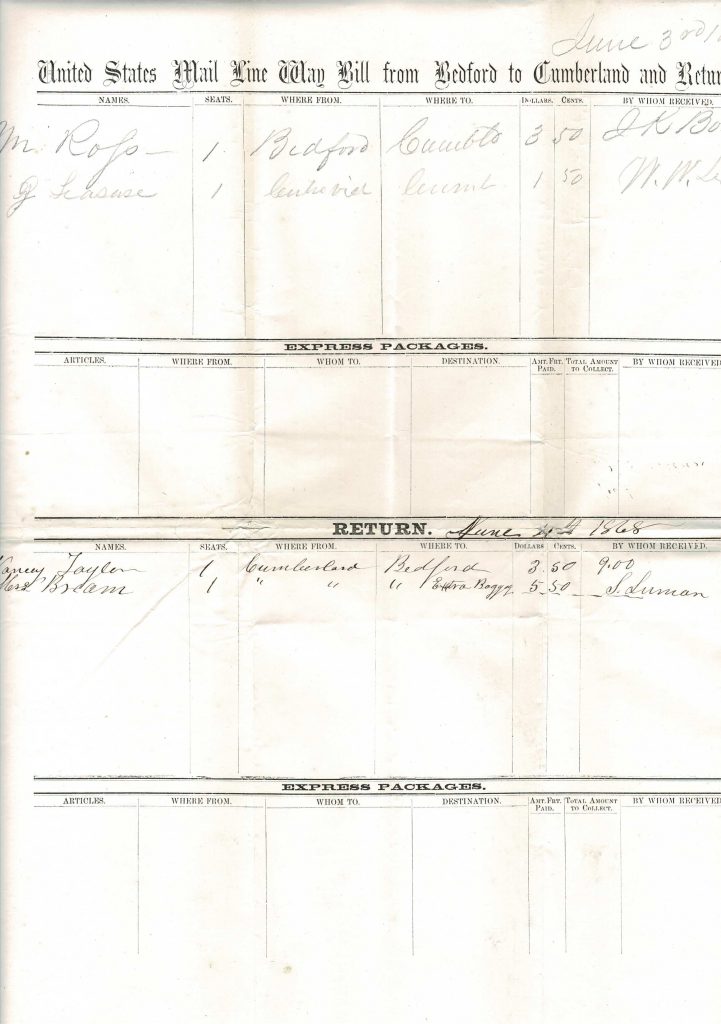 June 3rd
United States Mail Line Way Bill from Bedford to Cumberland and Retur
NAMES. SEATS. WHERE FROM. WHERE TO. DOLLARS. CENTS. BY WHOM RECEIVED.
M. Ross 1 Bedford Cumbld 3 50 J K Bo
1 1 50 W. W. Le
EXPRESS PACKAGES.
ARTICLES. WHERE FROM. WHOM TO. DESTINATION. AMT. FRT. PAID. TOTAL AMOUNT TO COLLECT. BY WHOM RECEIVED
RETURN. June 4th 1868
NAMES. SEATS. WHERE FROM. WHERE TO. DOLLARS CENTS. BY WHOM RECEIVED.
Nancy Taylor 1 Cumberland Bedford 3 50 9.00
Bream 1 " " " Extra Bagg 5 50 S. Luman
EXPRESS PACKAGES.
ARTICLES. WHERE FROM. WHOM TO. DESTINATION. AMT. FRT. PAID. TOTAL AMOUNT TO COLLECT. BY WHOM RECEIVED